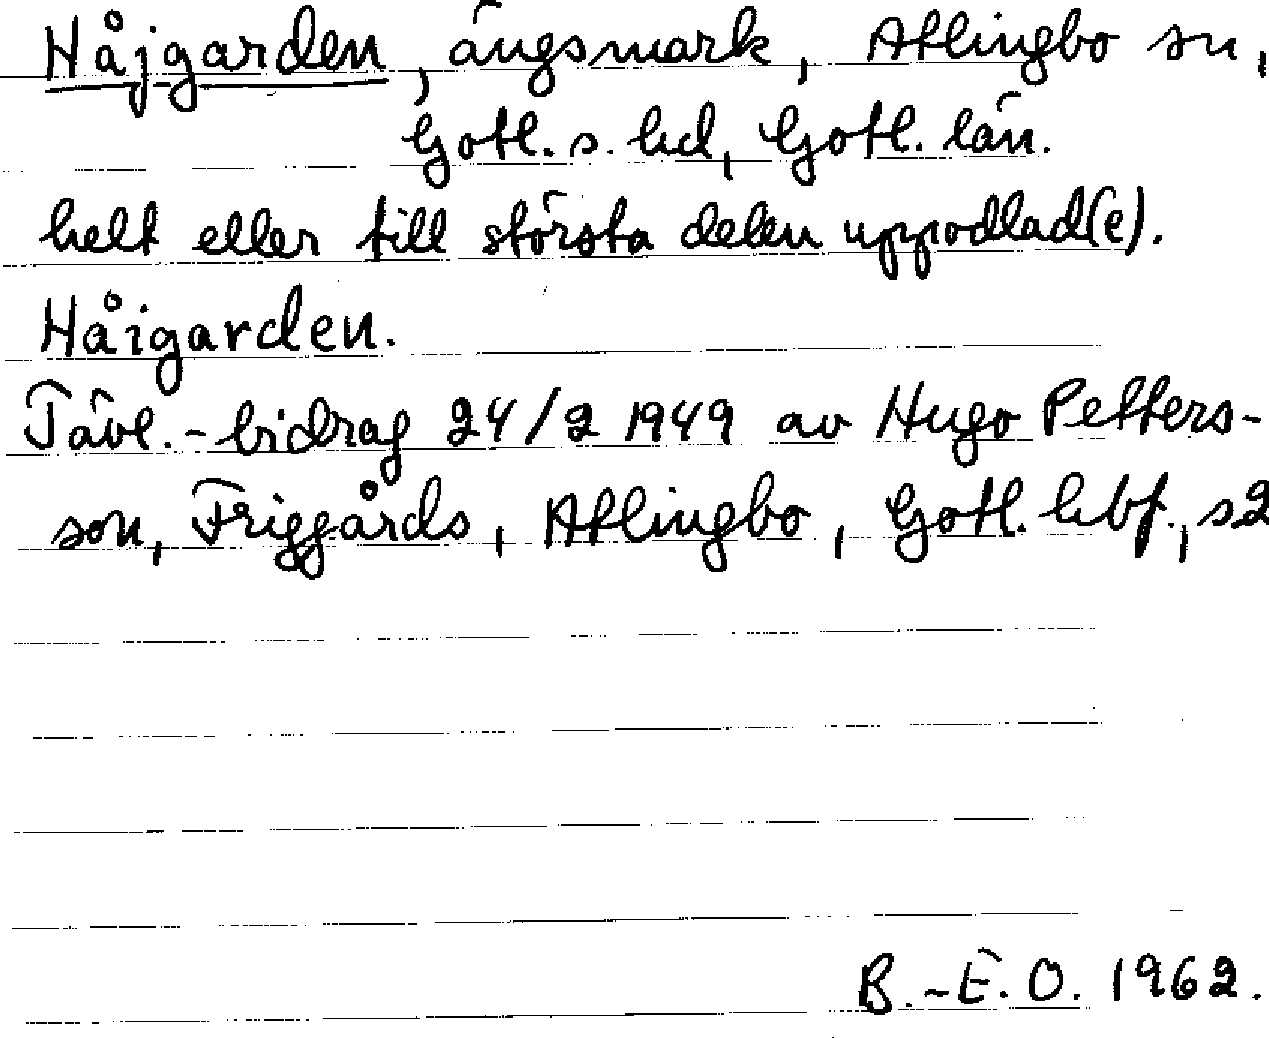 Håjgarden, ängsmark, Atlingbo sn,
Gotl. s. hd, Gotl. län.
helt eller till största delen uppodlad(e).
Håigarden.
Tävl.-bidrag 24/2 1949 av Hugo Petters-
son, Friggårds, Atlingbo, Gotl. hbf., s2
B.-E.O. 1962.